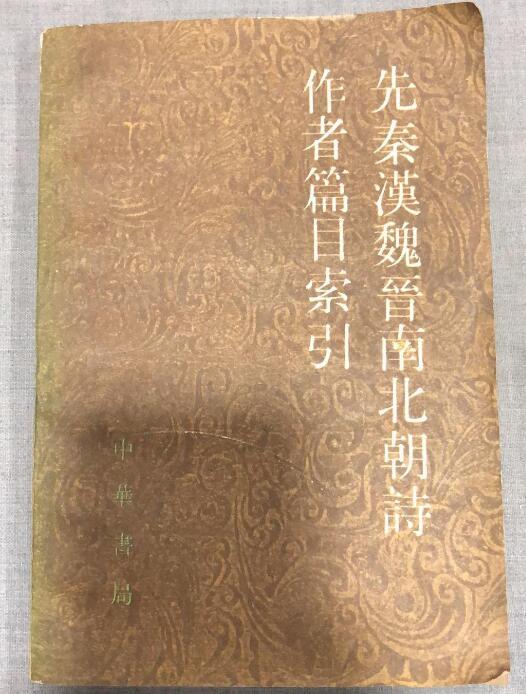 先秦漢魏晉南北朝詩
作者篇目索引
中華書局